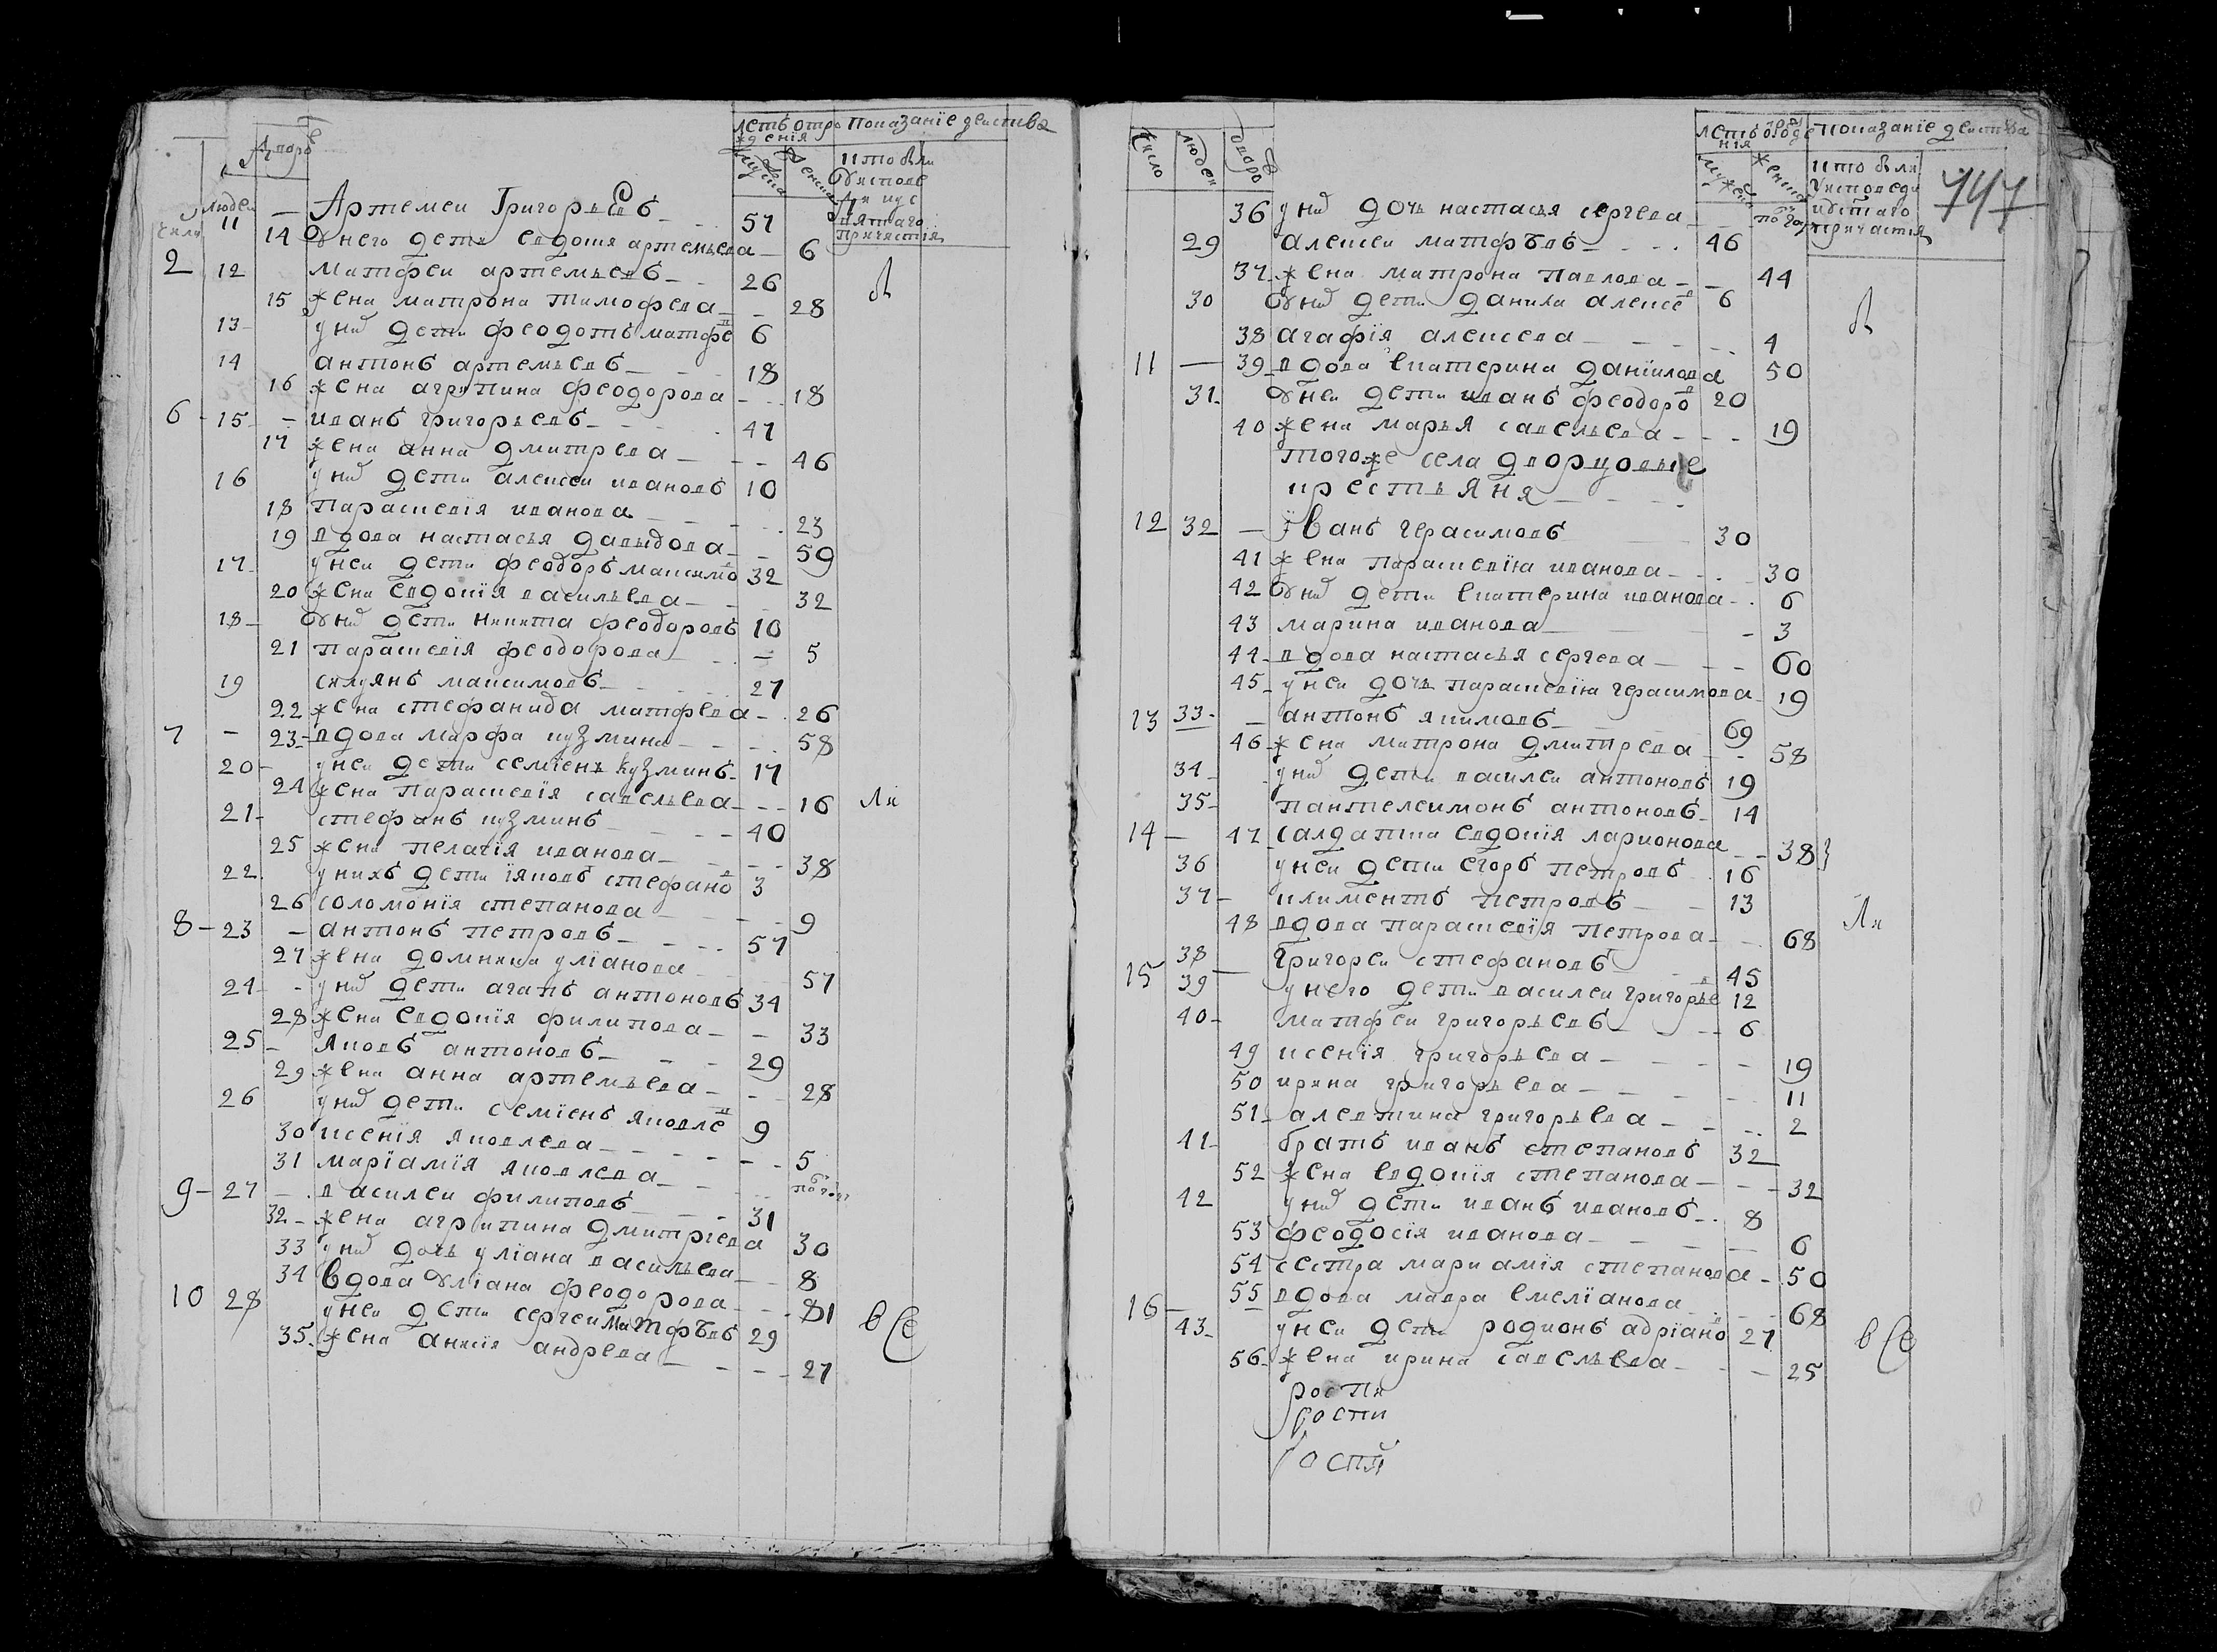 летъ отро показанїе деиства
ждения
дворо
мужеска женска
кто были
у исповеди
и кто с
вятаго
причастия
число людеи
11 — Артемеи Григорьевъ 57
14 у него дети евдокия артемьева — 6
2 12 матфеи артемьевъ — 26
15 жена матрона тимофеева — 28
13 — у них дети феодотъ матфеев 6
14 антонъ артемьевъ — 18
16 жена агрипина феодорова — 18
6 — 15 — иванъ григорьевъ — 47
17 жена анна дмитрева — 46
16 у них дети алексеи ивановъ 10
18 параскевїя иванова 23
19 вдова настасья давыдова — 59
17 — у неи дети феодоръ максимов 32
20 жена евдокїя васильева — 32
18 — у них дети никита феодоровъ 10
21 параскевїя феодорова — 5
19 силуянъ максимовъ — 27
22 жена стефанида матфева — 26
7 — 23 — вдова марфа кузмина — 58
20 — у неи дети семїенъ кузминъ — 17
24 жена параскевїя савельева — 16
21 — стефанъ кузминъ — 40
25 жена пелагїя иванова — 38
22 у нихъ дети їяковъ стефанов 3
26 соломонїя степанова — 9
8 — 23 — антонъ петровъ — 57
27 жена домникия улїанова 57
24 — у них дети агапъ антоновъ 34
28 жена евдокїя филипова — 33
25 — яковъ антоновъ — 29
29 жена анна артемьева — 28
26 у них дети семїенъ яковлев 9
30 ксенїя яковлева — 5
31 марїамїя яковлева — по год
9 — 27 — василеи филиповъ — 31
32 — жена агрипина дмитрїева 30
33 у них дочь улїана васильева — 8
34 вдова улїана феодорова — 81
10 28 у неи дети сергеи матфѣвъ 29
35 жена анисїя андрева — 27
в
ли
все
летъ от рожде показанїе деиства
ния
число людеи дворо
мужска женска
кто были
у исповеди
и святаго
причастия
747
36 у них дочь настасья сергева по год
29 алексеи матфѣвъ — 46
37 жена матрона павлова — 44
30 у них дети данила алексев 6
38 агафїя алексева — 4
11 — 39 вдова екатерина данїилова 50
31 — у неи дети иванъ феодоров 20
40 жена марья савельева — 19
того же села дворцовые
крестьяня
12 32 — Їванъ герасимовъ 30
41 жена параскевїя иванова — 30
42 у них дети екатерина иванова — 6
43 марина иванова — 3
44 — вдова настасья сергева — 60
45 — у неи дочь параскевїя герасимова 19
13 33 — антонъ якимовъ — 69
46 жена матрона дмитрева — 58
34 — у них дети василеи антоновъ 19
35 — пантелеимонъ антоновъ — 14
14 — 47 салдатка евдокїя ларионова — 38
36 у неи дети егоръ петровъ 16
37 — климентъ петровъ — 13
48 вдова параскевїя петрова — 68
38 григореи стефановъ 45
15 39 — у него дети василеи григорьев 12
40 — матфеи григорьевъ — 6
49 ксенїя григорьева — 19
50 ирина григорьева — 11
51 — алевтина григорьева — 2
41 — братъ иванъ степановъ 32
52 жена евдокїя степанова — 32
42 у них дети иванъ ивановъ — 8
53 феодосїя иванова — 6
54 сестра мариамїя степанова — 50
16 — 55 вдова мавра емелїанова 68
43 — у неи дети родионъ адрїанов 27
56 — жена ирина савельева — 25
в
ли
все
роспи
роспи
роспи